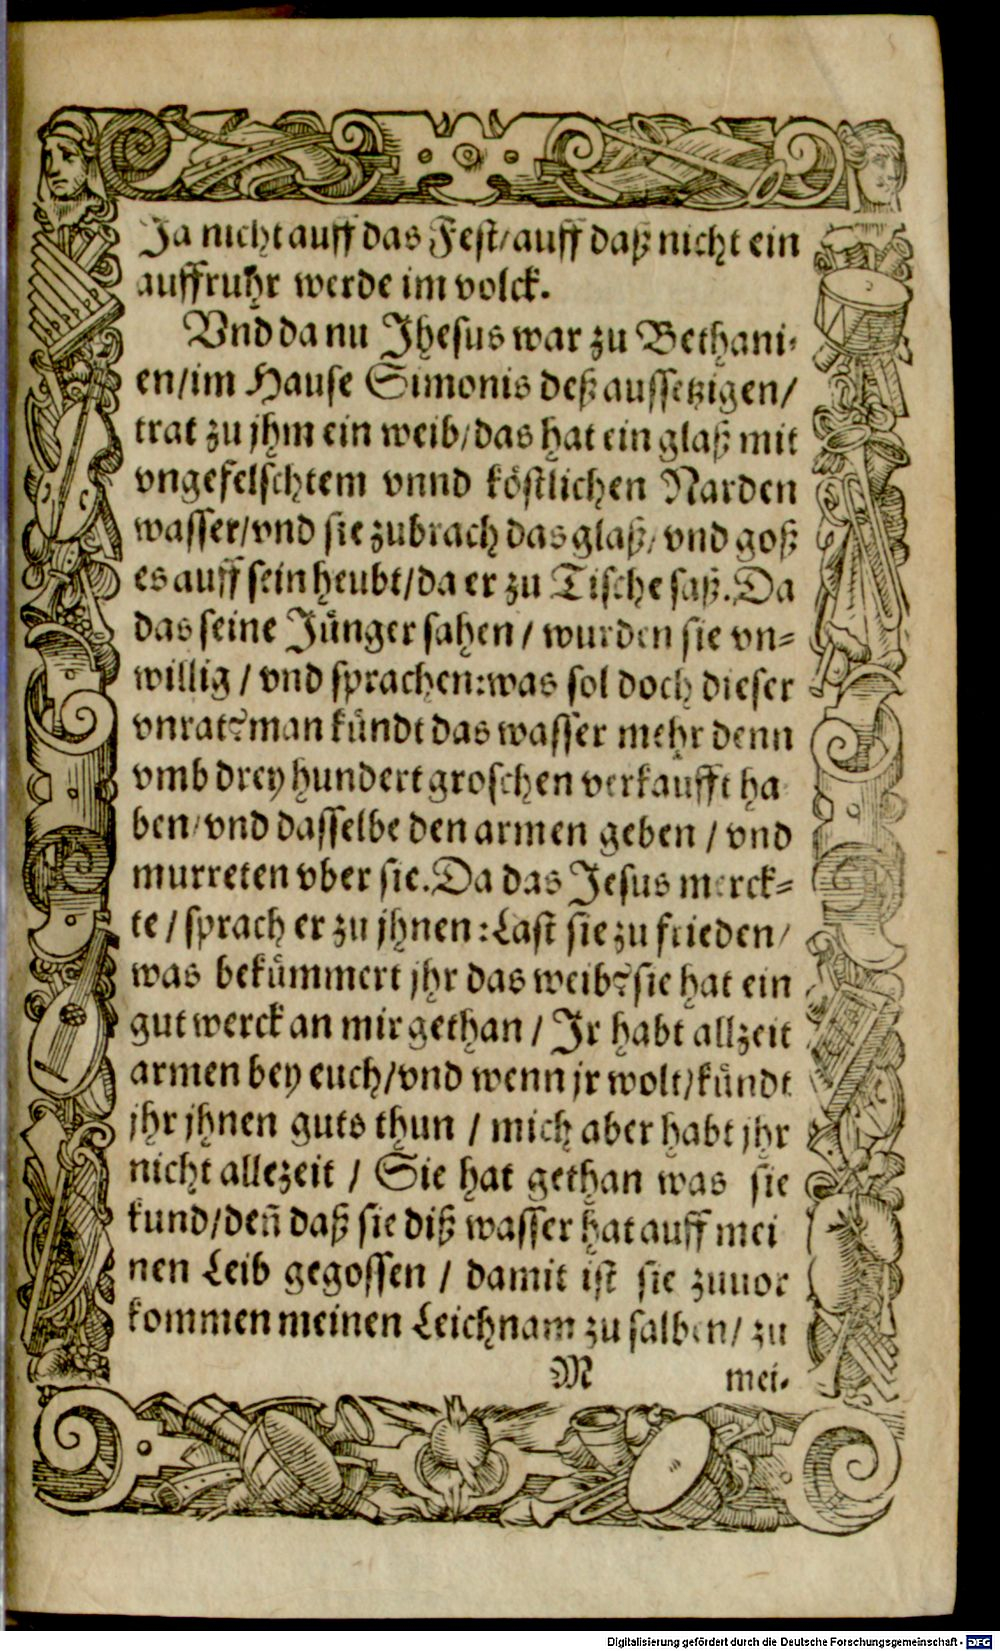 Ja nicht auff das Fest/auff daß nicht ein
auffruhr werde im volck.
Vnd da nu Jhesus war zu Bethani-
en/im Hause Simonis deß aussetzigen/
trat zu jhm ein weib/das hat ein glaß mit
vngefelschtem vnnd köstlichen Narden
wasser/vnd sie zubrach das glaß/vnd goß
es auff sein heubt/da er zu Tische saß.Da
das seine Jünger sahen/wurden sie vn-
willig/vnd sprachen:was sol doch dieser
vnrat?man kündt das wasser mehr denn
vmb drey hundert groschen verkaufft ha
ben/vnd dasselbe den armen geben/vnd
murreten vber sie.Da das Jesus merck-
te/sprach er zu jhnen:Last sie zu frieden/
was bekümmert jhr das weib?sie hat ein
gut werck an mir gethan/Jr habt allzeit
armen bey euch/vnd wenn jr wolt/kündt
jhr jhnen guts thun/mich aber habt jhr
nicht allezeit/Sie hat gethan was sie
kund/deñ daß sie diß wasser hat auff mei
nen Leib gegossen/damit ist sie zuuor
kommen meinen Leichnam zu salben/zu
M mei-
Digitalisierung gefördert durch die Deutsche Forschungsgemeinschaft - DFG